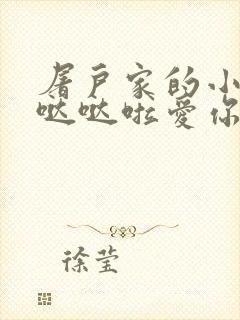 屠户家的小
哒哒啦爱你
徐莹